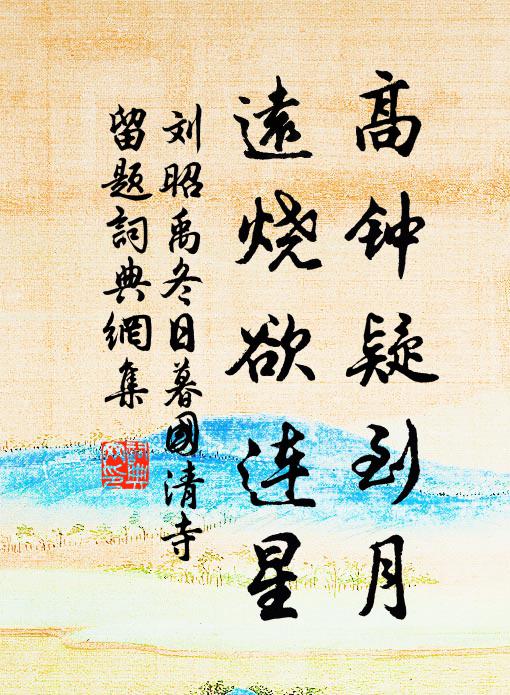 高钟疑到月
遠烧欲连星
刘昭禹冬日暮國清寺
留题詞典網集